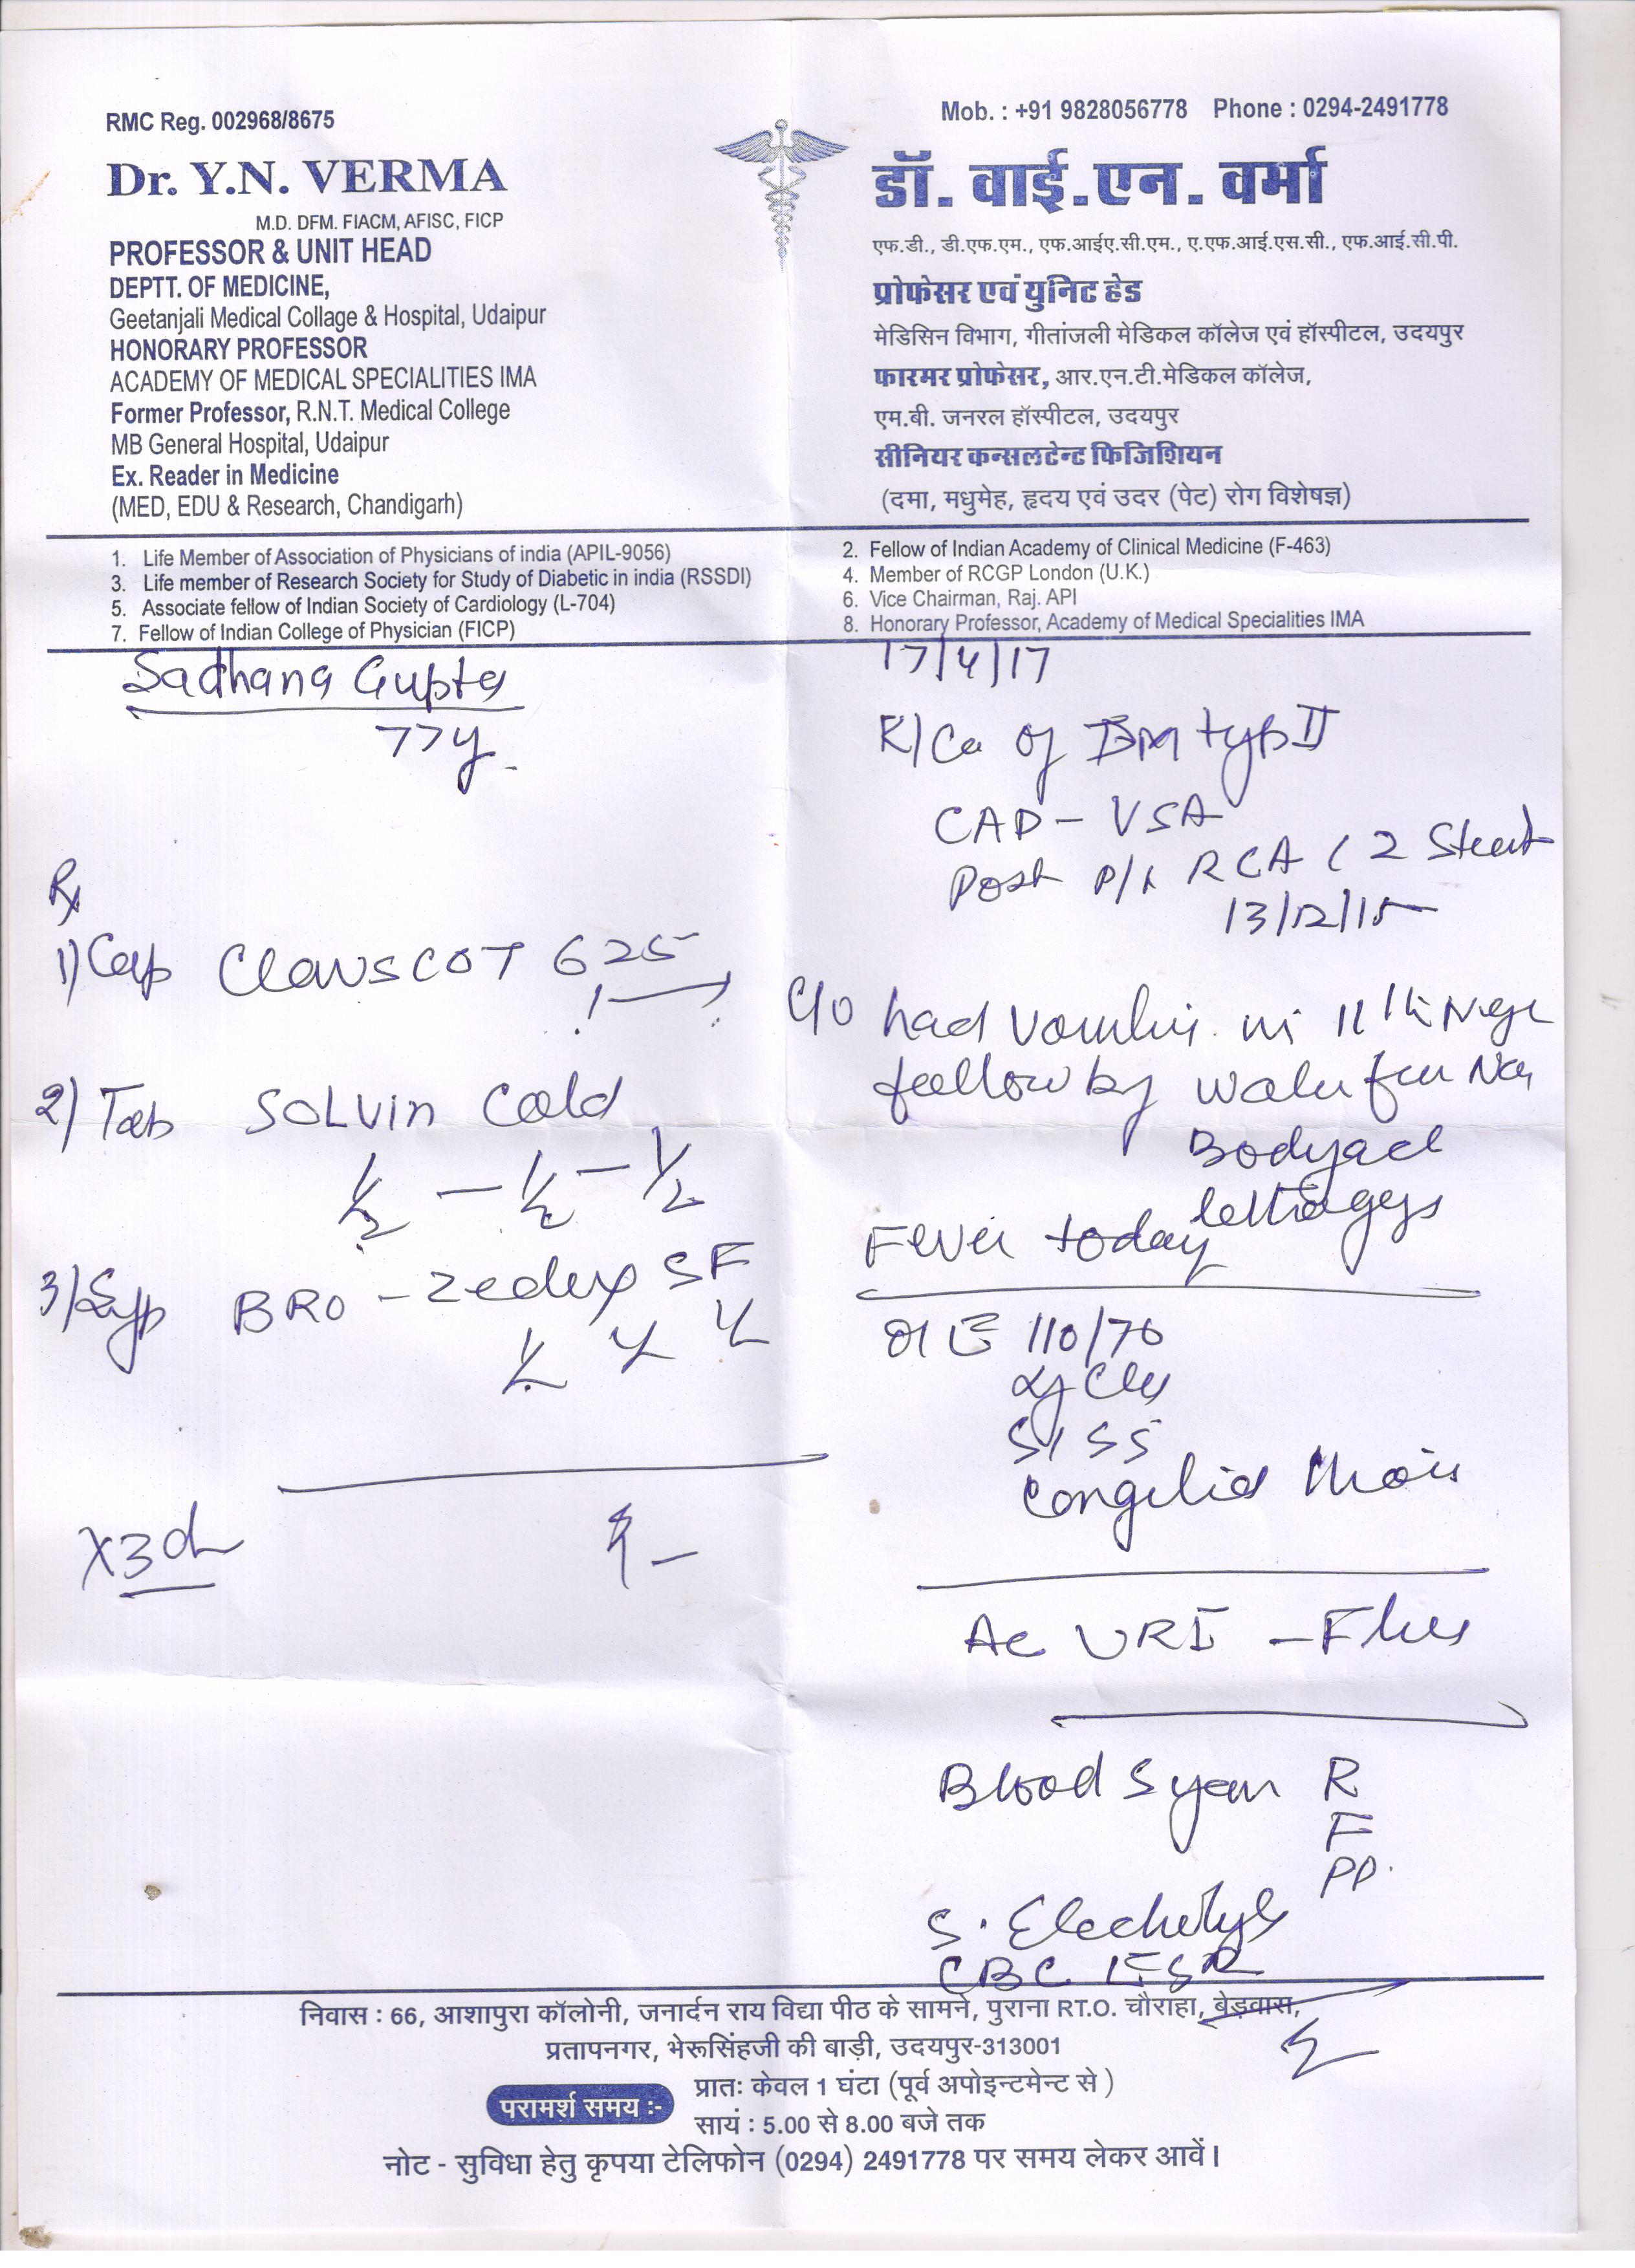 RMC Reg. 002968/8675
Mob. : +91 9828056778 Phone : 0294-2491778
Dr. Y.N. VERMA
M.D. DFM. FIACM, AFISC, FICP
PROFESSOR & UNIT HEAD
DEPTT. OF MEDICINE,
Geetanjali Medical Collage & Hospital, Udaipur
HONORARY PROFESSOR
ACADEMY OF MEDICAL SPECIALITIES IMA
Former Professor, R.N.T. Medical College
MB General Hospital, Udaipur
Ex. Reader in Medicine
(MED, EDU & Research, Chandigarh)
डॉ. वाई.एन. वर्मा
एफ.डी., डी.एफ.एम., एफ.आईए.सी.एम., ए.एफ.आई.एस.सी., एफ.आई.सी.पी.
प्रोफेसर एवं युनिट हेड
मेडिसिन विभाग, गीतांजली मेडिकल कॉलेज एवं हॉस्पीटल, उदयपुर
फारमर प्रोफेसर, आर.एन.टी.मेडिकल कॉलेज,
एम.बी. जनरल हॉस्पीटल, उदयपुर
सीनियर कन्सलटेन्ट फिजिशियन
(दमा, मधुमेह, हृदय एवं उदर (पेट) रोग विशेषज्ञ)
1. Life Member of Association of Physicians of india (APIL-9056)
2. Fellow of Indian Academy of Clinical Medicine (F-463)
3. Life member of Research Society for Study of Diabetic in india (RSSDI)
4. Member of RCGP London (U.K.)
5. Associate fellow of Indian Society of Cardiology (L-704)
6. Vice Chairman, Raj. API
7. Fellow of Indian College of Physician (FICP)
8. Honorary Professor, Academy of Medical Specialities IMA
Sadhana Gupta
77y
Rx
1) Cap CLAVSCOT 625
2) Tab SOLVIN Cold
½ - ½ - ½
3) Syp BRO-zedex SF
x3d
17/4/17
K/Ca of DM type II
CAD - VSA
Post RCA ( 2 Stent
13/12/15
C/o had Vomiting in 11th
follow by
Bodyache
Fever today
110/70
Ac URI - Flu
Blood Sugar R
F
PP.
S. Electrolyte
CBC ESR
निवास : 66, आशापुरा कॉलोनी, जनार्दन राय विद्या पीठ के सामने, पुराना RT.O. चौराहा, बेड़वास,
प्रतापनगर, भेरूसिंहजी की बाड़ी, उदयपुर-313001
परामर्श समय :-
प्रातः केवल 1 घंटा (पूर्व अपोइन्टमेन्ट से )
सायं : 5.00 से 8.00 बजे तक
नोट - सुविधा हेतु कृपया टेलिफोन (0294) 2491778 पर समय लेकर आवें।